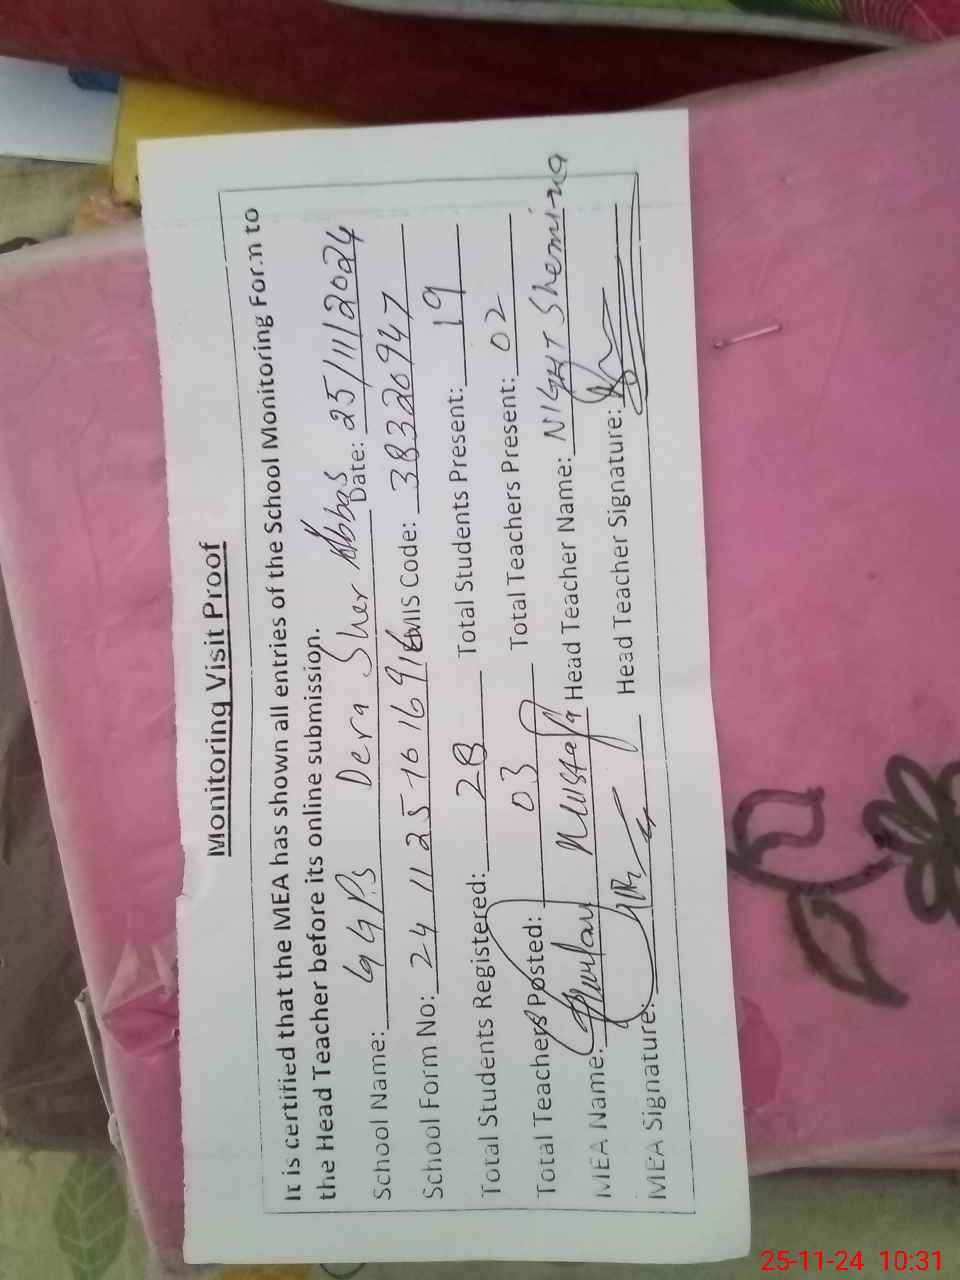 Monitoring Visit Proof
It is certified that the MEA has shown all entries of the School Monitoring Form to
the Head Teacher before its online submission.
School Name: GGPS Dera Sher Abbas Date: 25/11/2024
School Form No: 24 11 25 16 16 91 EMIS Code: 38320947
Total Students Registered: 28 Total Students Present: 19
Total Teachers Posted: 03 Total Teachers Present: 02
MEA Name: Ghulam Mustafa Head Teacher Name: NIGHT Shemina
MEA Signature: Head Teacher Signature:
25-11-24 10:31